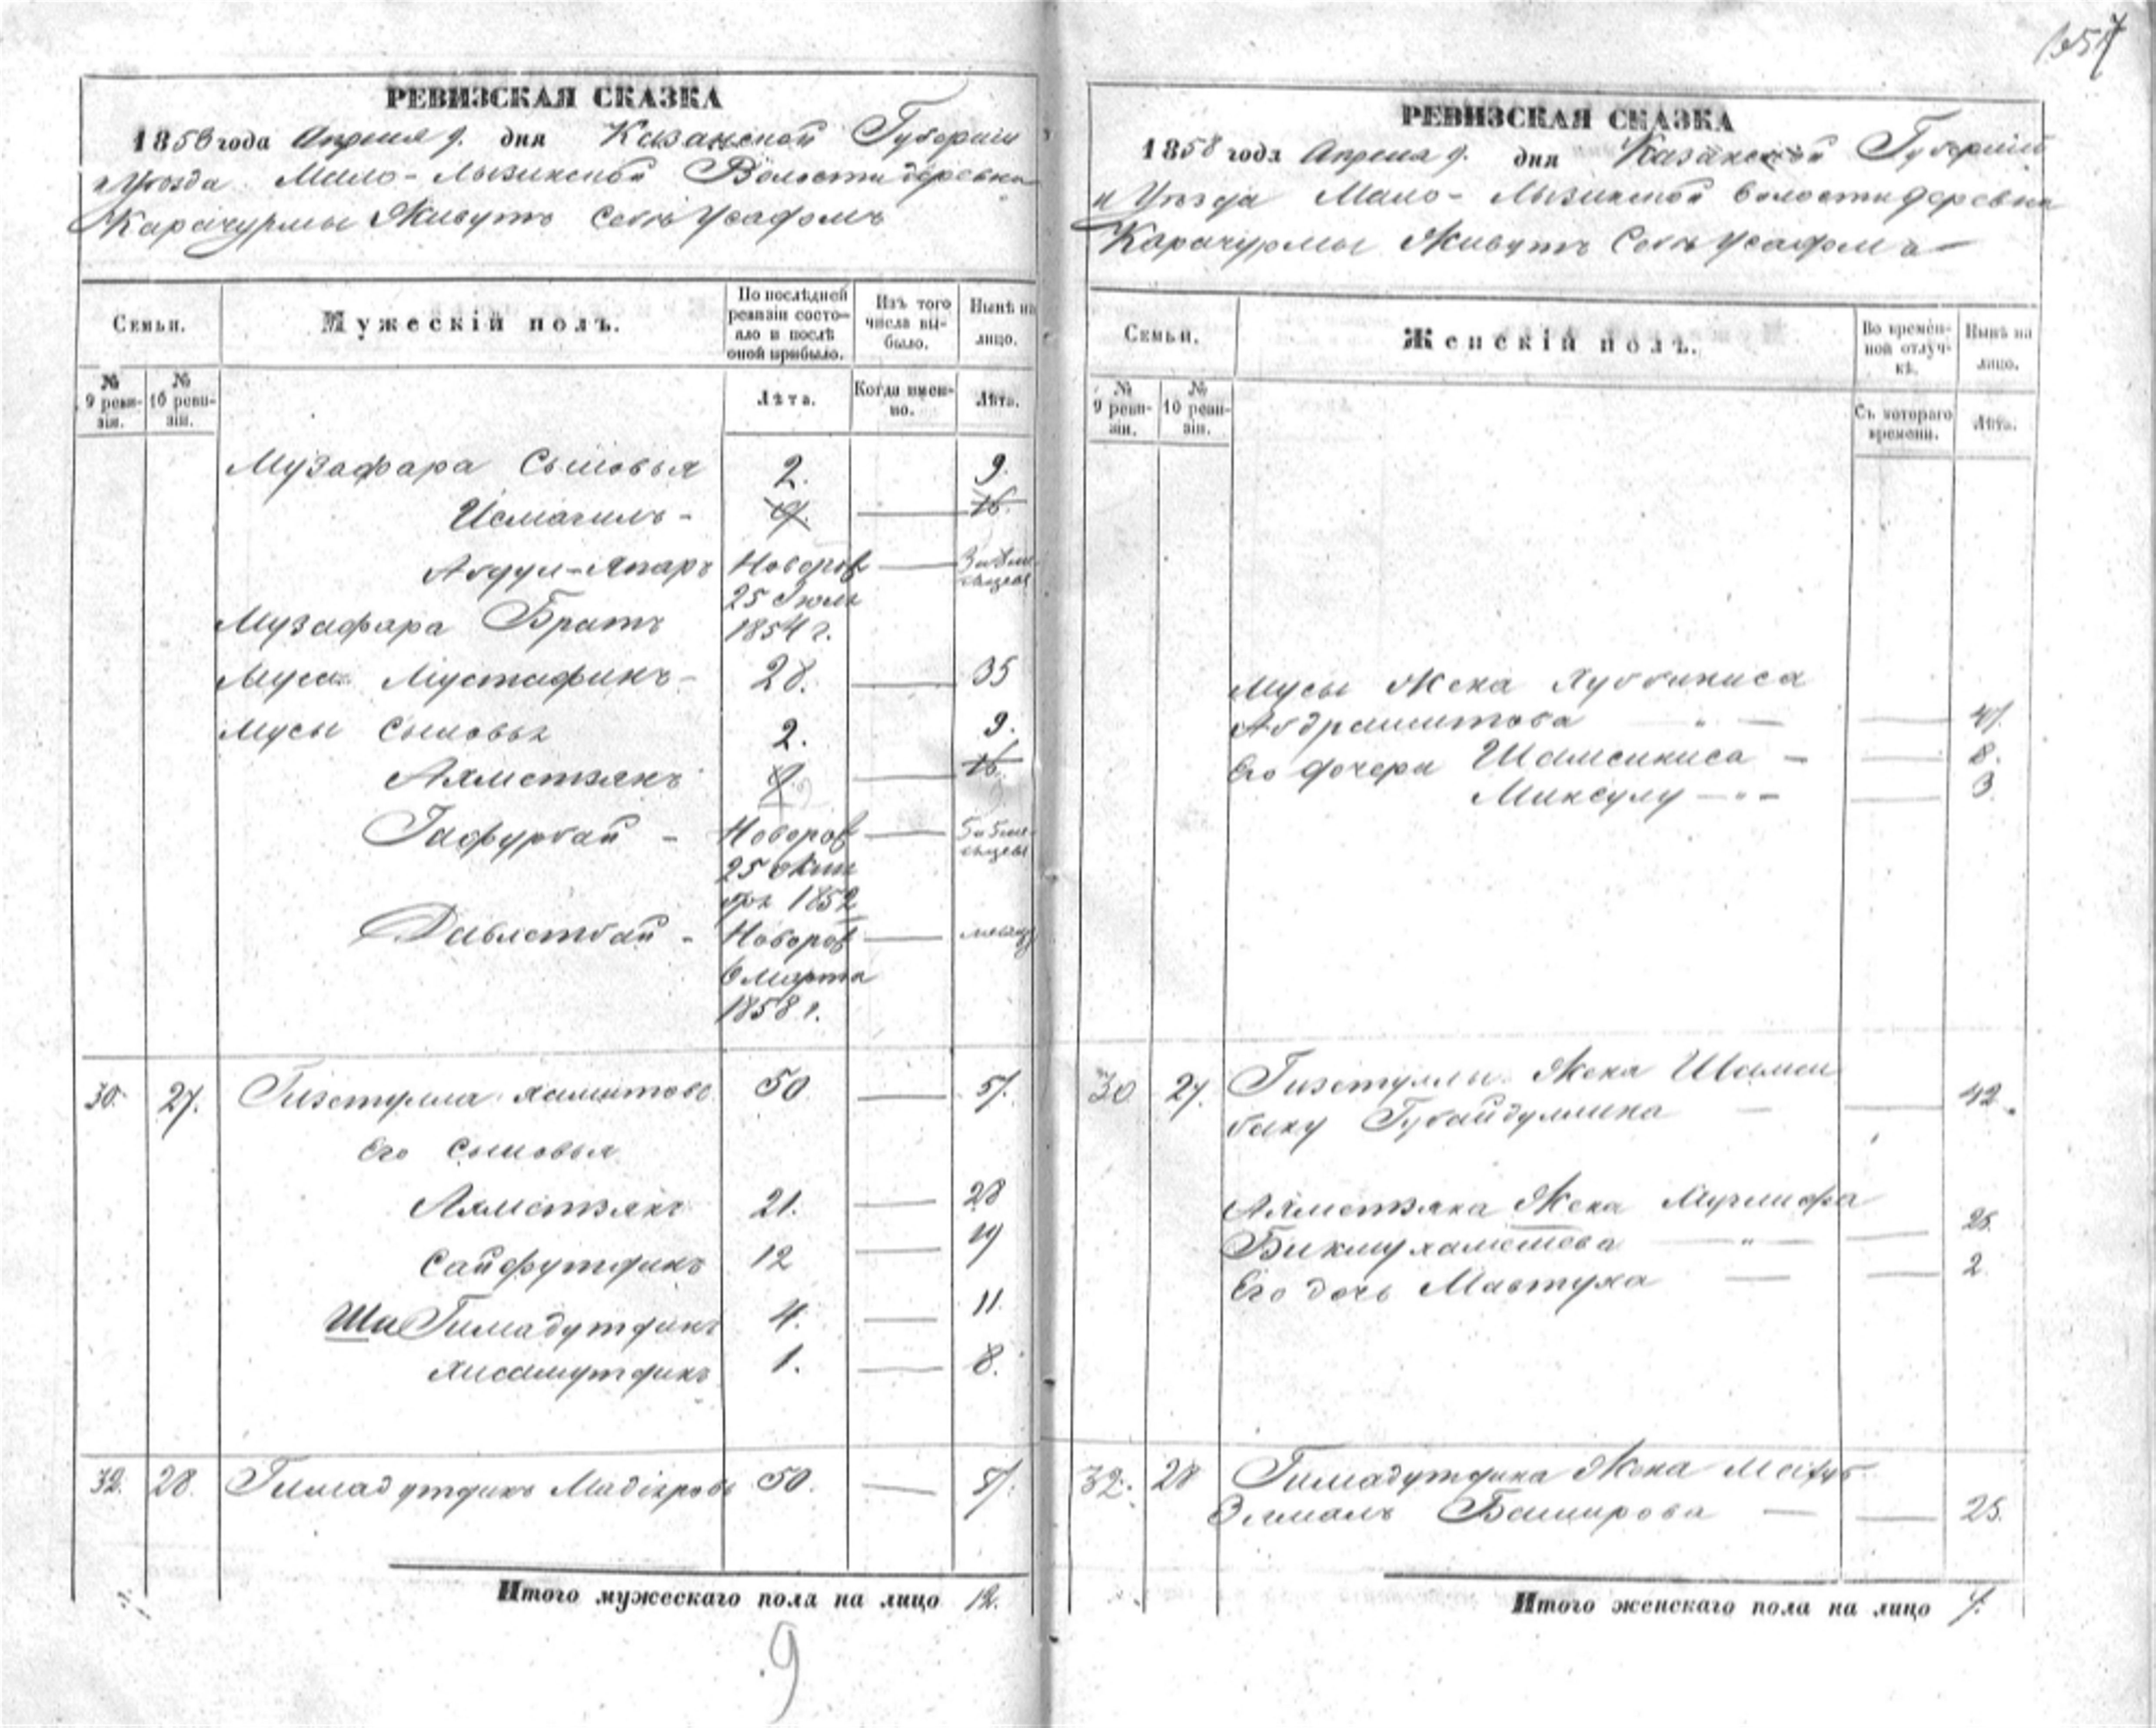 РЕВИЗСКАЯ СКАЗКА
1858 года Апреля 9. дня Казанской Губернiи
и Уѣзда Мало-Лызинской Волости деревни
Карачурмы Живутъ
Семьи. Мужескiй полъ. По послѣдней ревизiи состояло и послѣ оной прибыло. Изъ того числа выбыло. Нынѣ на лицо.
№ 9 ревизiи. № 10 ревизiи. Лѣта. Когда именно. Лѣта.
Музафара Сыновья 2. 9.
Исмагилъ -
Абдул-Япаръ Новорож 3 и 8 мѣсяцевъ
25 Iюля
Музафара Братъ 1854 г.
Муса Мустафинъ - 28. 35
Мусы Сыновья 2. 9.
Ахметзянъ
Гафурбай - Новорож 5 и 5 мѣсяцевъ
25 Октября 1852
Давлетбай - Новорож мѣсяц
6 Марта
1858 г.
30. 27. Гизетулла Хамитовъ 50 57.
Его Сыновья
Ахметзянъ 21. 28
Сайфутдинъ 12 19
Ша Гимадутдинъ 4. 11.
Хисамутдинъ 1. 8.
32. 28. Гимадутдинъ 50. 57.
Итого мужескаго пола на лицо 12.
9
РЕВИЗСКАЯ СКАЗКА
1858 года Апреля 9. дня Казанской Губернiи
и Уѣзда Мало-Лызинской Волости деревни
Карачурмы Живутъ
Семьи. Женскiй полъ. Во временной отлучкѣ. Нынѣ на лицо.
№ 9 ревизiи. № 10 ревизiи. Съ котораго времени. Лѣта.
Мусы Жена Хуббиниса
Абдрашитова - " -
Его дочери Шамсиниса - 8.
Минсулу - " - 3
30 27. Гизетуллы Жена Шамси
бану Губайдуллина 42.
Ахметзяна Жена
Бикмухаметева - " -
Его дочь Мавтуха 2
32. 28 Гимадутдина Жена
Баширова 25.
Итого женскаго пола на лицо 7.